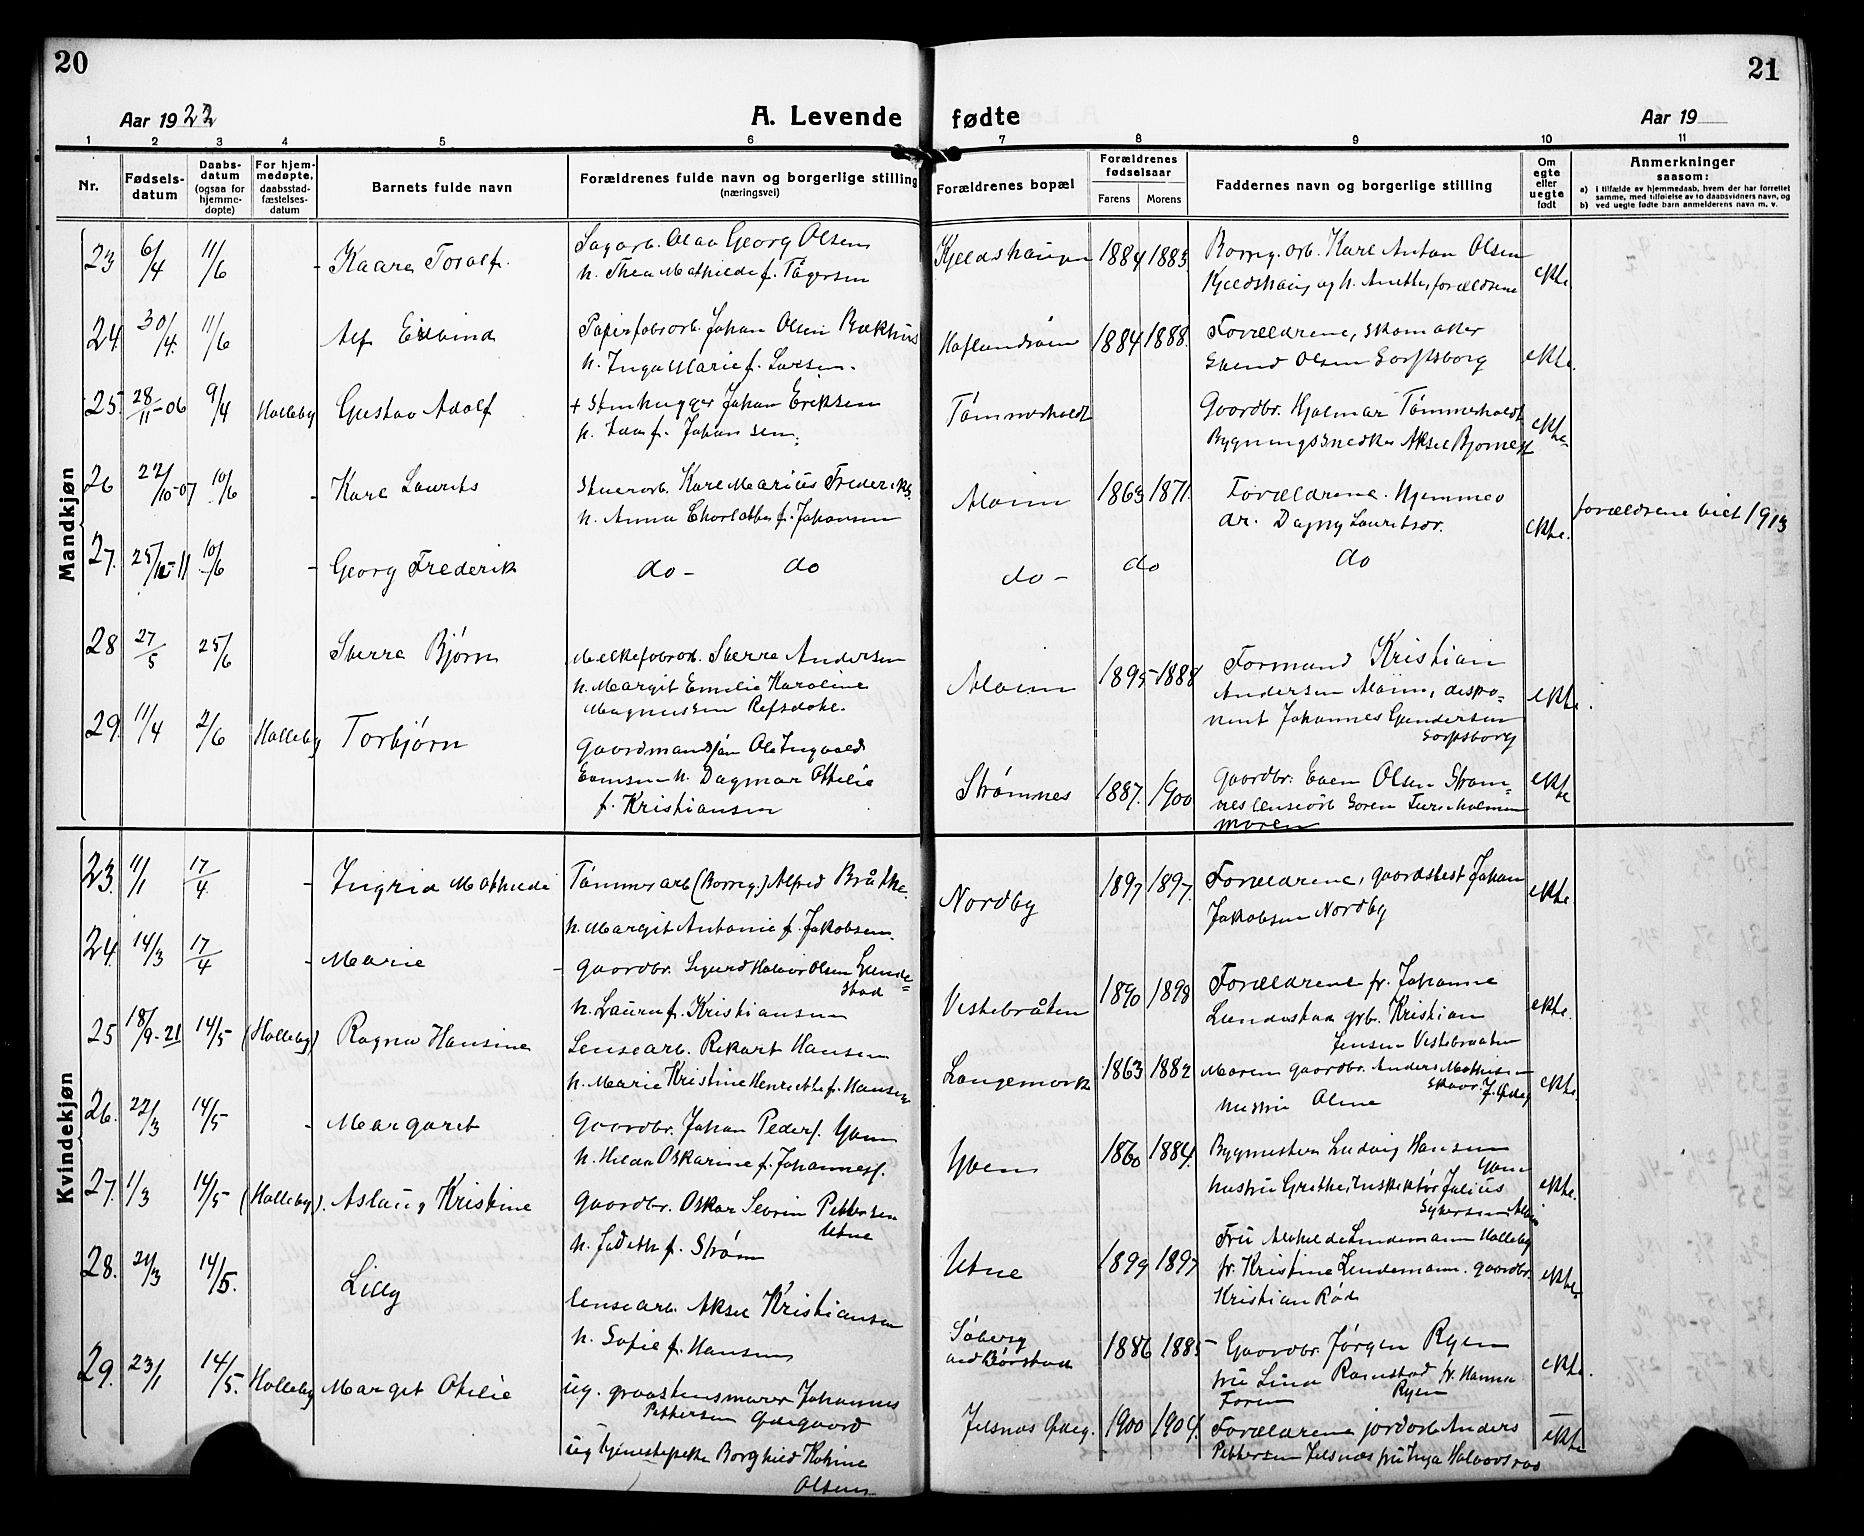 20
21
Aar 1922
A. Levende
fødte
Aar 19
1 2 3 4 5 6 7 8 9 10 11
Nr.
Fødsels-
datum
Daabs-
datum
(ogsaa for
hjemme-
døpte)
For hjem-
medøpte,
daabsstad-
fæstelses-
datum
Barnets fulde navn
Forældrenes fulde navn og borgerlige stilling
(næringsvei)
Forældrenes bopæl
Forældrenes
fødselsaar
Farens Morens
Faddernes navn og borgerlige stilling
Om
egte
eller
uegte
født
Anmerkninger
saasom:
a) i tilfælde av hjemmedaab, hvem der har forrettet
samme, med tilføielse av to daabsvidners navn, og
b) ved uegte fødte barn anmelderens navn m. v.
Mandkjøn
23 6/4 11/6 - Kaare Toralf.
Olaf Georg Olsen
h. Thea Mathilde f.
Kjeldshaugen 1884 1883
Borreg. arb. Karl Anton Olsen
Kjeldshaug og h. Anette, forældrene
ekte.
24 30/4. 11/6
Papirfabarb. Johan Olsen Bækhus
h. Inga Marie f. Larsen.
1884 1888.
Forældrene, skomaker
Olsen Sarpsborg
ekte.
25. 28/11-06 9/4 Halleby Gustav Adolf
+ Stenhugger Johan Eriksen
h. f. Johansen.
Tømmerholdt
Gaardbr. Hjalmar Tømmerholdt
Bygningssnedker Aksel
ekte.
26 22/10-07 10/6 - Karl Laurits
Karl Marius Frederiks
h. Anna f. Johansen
Alvim 1863 1871.
Forældrene. Hjemmev
dr. Dagny
ekte.
forældrene viet 1913
27. 25/12-11 10/6 - Georg Frederik
do - do
do - do do
28 27/5 25/6 Sverre Bjørn
Melkefabarb. Sverre Andersen
h. Margit Emilie Karoline
Magnussen
Alvim 1895 - 1888
Formand Kristian
Andersen Alvim, dispo-
nent Johannes Gundersen
Sarpsborg
ekte.
29. 11/4 2/6 Halleby Torbjørn
Gaardmandssøn Ole Ingvald
Evensen h. Dagmar Otilie
f. Kristiansen
Strømnes 1887. 1900
Gaardbr. Even Olsen Strøm-
nes
moren
ekte
Kvindekjøn
23. 11/1 17/4. - Ingrid Mathilde
Tømmerarb (Borreg.) Alfred Bråthe.
h. Margit Antonie f. Jakobsen.
Nordby 1897 1897.
Forældrene, Johan
Jakobsen Nordby
ekte.
24. 14/3 17/4 - Marie -
Gaardbr. Sigurd Halvor Olsen Lunde=
stad
h. Laura f. Kristiansen
Vestebråten 1890 1898
Forældrene fr. Johanne
Lundestad grb. Kristian
Jensen Vestebraaten
ekte.
25 18/9-21 14/5 (Halleby) Ragna Hansine
Lensearb. Rikart Hansen
h. Marie Kristine Henriette f. Hansen
Langemark 1863 1882
Moren gaardbr. Anders
hustru
ekte.
26. 22/3 14/5 - Margaret
Gaardbr. Johan Peders. Yven
h. Hilda Oskarine f. Johanness.
Yven 1860 1884.
Bygmester Ludvig Hansen
Yven
hustru Grethe, inspektør Julius
ekte.
27. 1/3 14/5 (Halleby). Aslaug Kristine
Gaardbr. Oskar Severin Pettersen
Utne
h. f. Strøm
Utne 1899 1897
Fru Lindemann Halleby
fr. Kristine Lindemann. gaardbr.
Kristian Rød
ekte.
28. 21/3 14/5. Lilly
lensearb. Aksel Kristiansen
h. Sofie f. Hansen
1886 1885 -
Gaardbr. Jørgen Ryen
fru Lina fr. Hanna
Ryen
ekte.
29. 23/1 14/5. Halleby Margit Otilie
ug. Johannes
Pettersen Ødegaard
ug tjenestepike Borghild
Olsen
1900 1904.
Forældrene jordarb Anders
Pettersen fru Inga